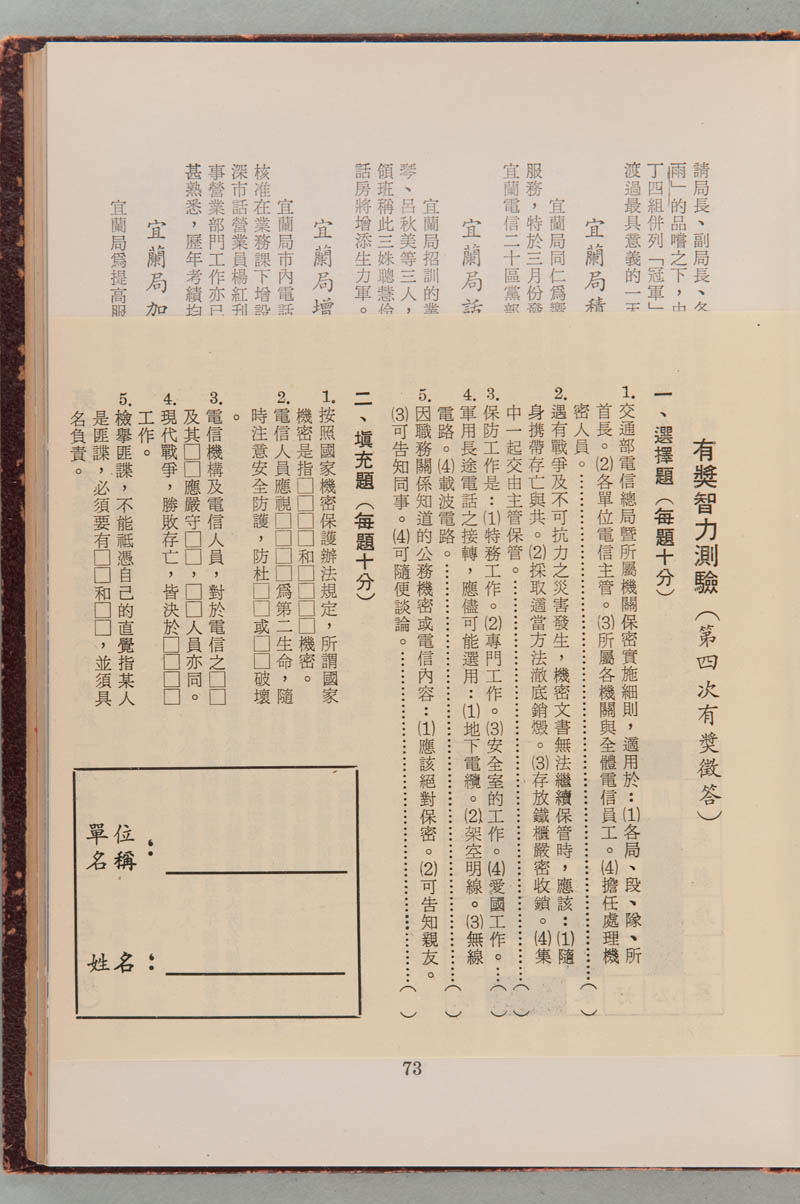 請局長、副局長、各
雨」的品嚐之下,由
丁四組併列「冠軍」
渡過最具意義的一天
宜蘭局積
宜蘭局同仁爲響
服務,特於三月份發
宜蘭電信二十區黨部
宜蘭局話
宜蘭局招訓的業
琴、呂秋美等三人,
領班稱此三姝聰慧伶
話房將增添生力軍。
宜蘭局增
宜蘭局市內電話
核准在業務課下增設
深市話營業員楊紅利
事營業部門工作亦已
甚熟悉,歷年考績均
宜蘭局加
宜蘭局爲提高服
有獎智力測驗(第四次有獎徵答)
一、選擇題(每題十分)
1.交通部電信總局暨所屬機關保密實施細則,適用於:(1)各局、段、隊、所
首長。(2)各單位電信主管。(3)所屬各機關與全體電信員工。(4)擔任處理機
密人員。……………………………………( )
2.遇有戰爭及不可抗力之災害發生,機密文書無法繼續保管時,應該:(1)隨
身携帶存亡與共。(2)採取適當方法澈底銷燬。(3)存放鐵櫃嚴密收鎖。(4)集
中一起交由主管保管。……………………………( )
3.保防工作是:(1)特務工作。(2)專門工作。(3)安全室的工作。(4)愛國工作。…( )
4.軍用長途電話之接轉,應儘可能選用:(1)地下電纜。(2)架空明線。(3)無線
電路。(4)載波電路。……………………………( )
5.因職務關係知道的公務機密或電信內容:(1)應該絕對保密。(2)可告知親友。
(3)可告知同事。(4)可隨便談論。……………………………( )
二、塡充題(每題十分)
1.按照國家機密保護辦法規定,所謂國家
機密是指□□□和□□□□機密。
2.電信人員應視□□□□爲第二生命,隨
時注意安全防護,防杜□□或□□破壞
。
3.電信機構及電信人員,對於電信之□□
及其□□應嚴守□□,□□人員亦同。
4.現代戰爭,勝敗存亡,皆決於□□□□
工作。
5.檢舉匪諜,不能祗憑自己的直覺指某人
是匪諜,必須要有□□和□□,並須具
名負責。
單位
名稱:
姓名:
73